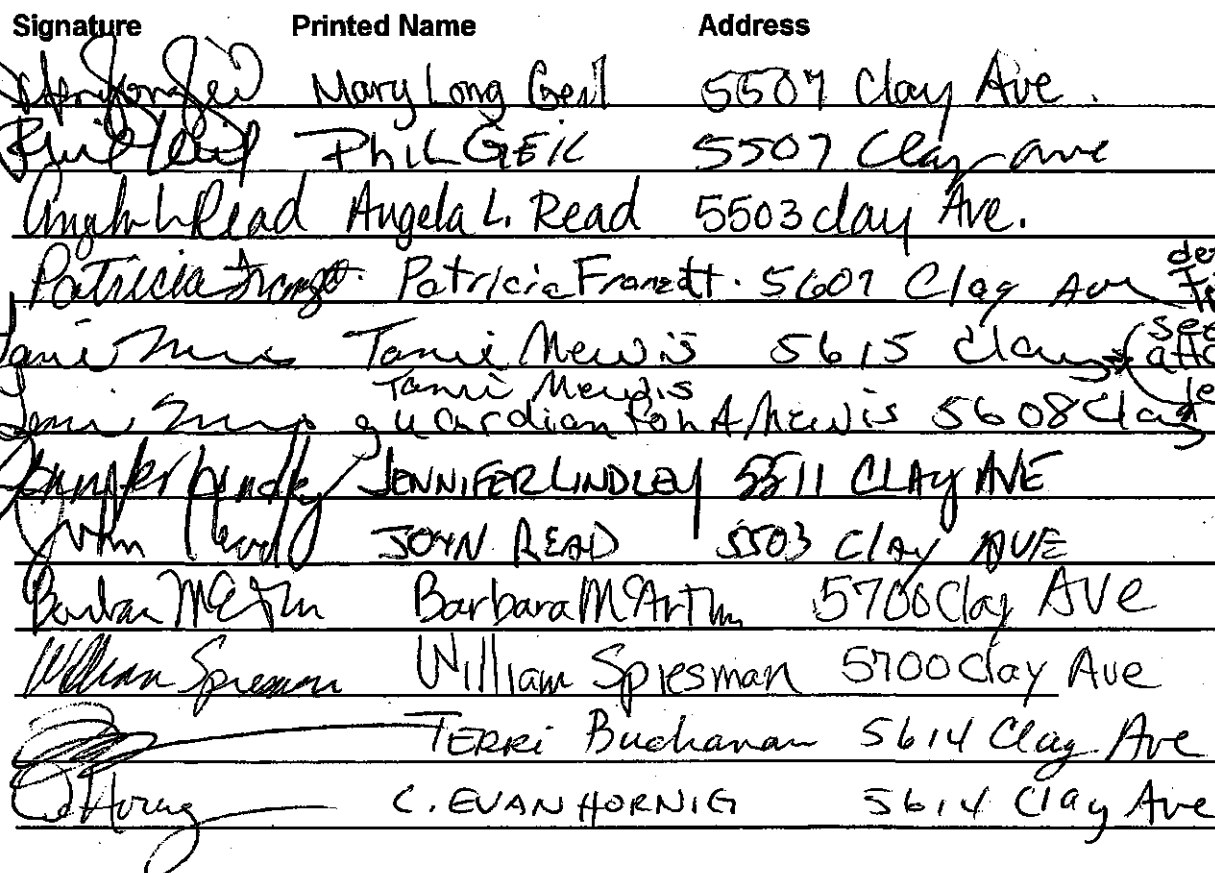 Signature Printed Name Address
Mary Long Geil 5507 Clay Ave.
Phil Geil PhiL GEiL 5507 Clay ave
Angela L Read Angela L. Read 5503 clay Ave.
Patricia Patricia 5607 Clag Ave
Tami Mewis 5615 Clay (see
Tami Mewis
guardian for A Mewis 5608 Clay
Jennifer Lindley JENNIFER LINDLEY 5511 CLAY AVE
John Read JOHN READ 5503 Clay AVE
Barbara McArthur 5700 Clay AVe
William Spiesman William Spiesman 5700 Clay Ave
TERRi Buchanan 5614 Clay Ave
Hornig C. EVAN HORNIG 5614 Clay Ave